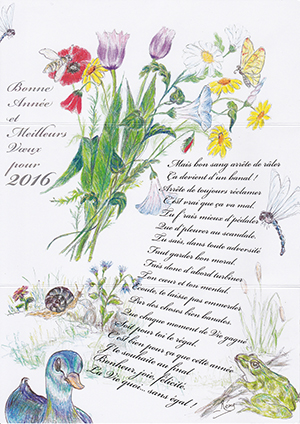 Bonne
Année
et
Meilleurs
Vœux
pour
2016
Mais bon sang arrête de râler
Ça devient d'un banal !
Arrête de toujours réclamer
C'est vrai que ça va mal.
Tu frais mieux d'pédaler
Que d'pleurer au scandale.
Tu sais, dans toute adversité
Faut garder bon moral.
Fais donc d'abord turbiner
Ton cœur et ton mental.
Ecoute, te laisse pas emmerder
Par des choses bien banales.
chaque moment de Vie gagné
Soit pour toi le régal
c'est bon pour ça que cette année
J'te souhaite au final
Bonheur, joie, félicité,
La Vie quoi.. sans égal !